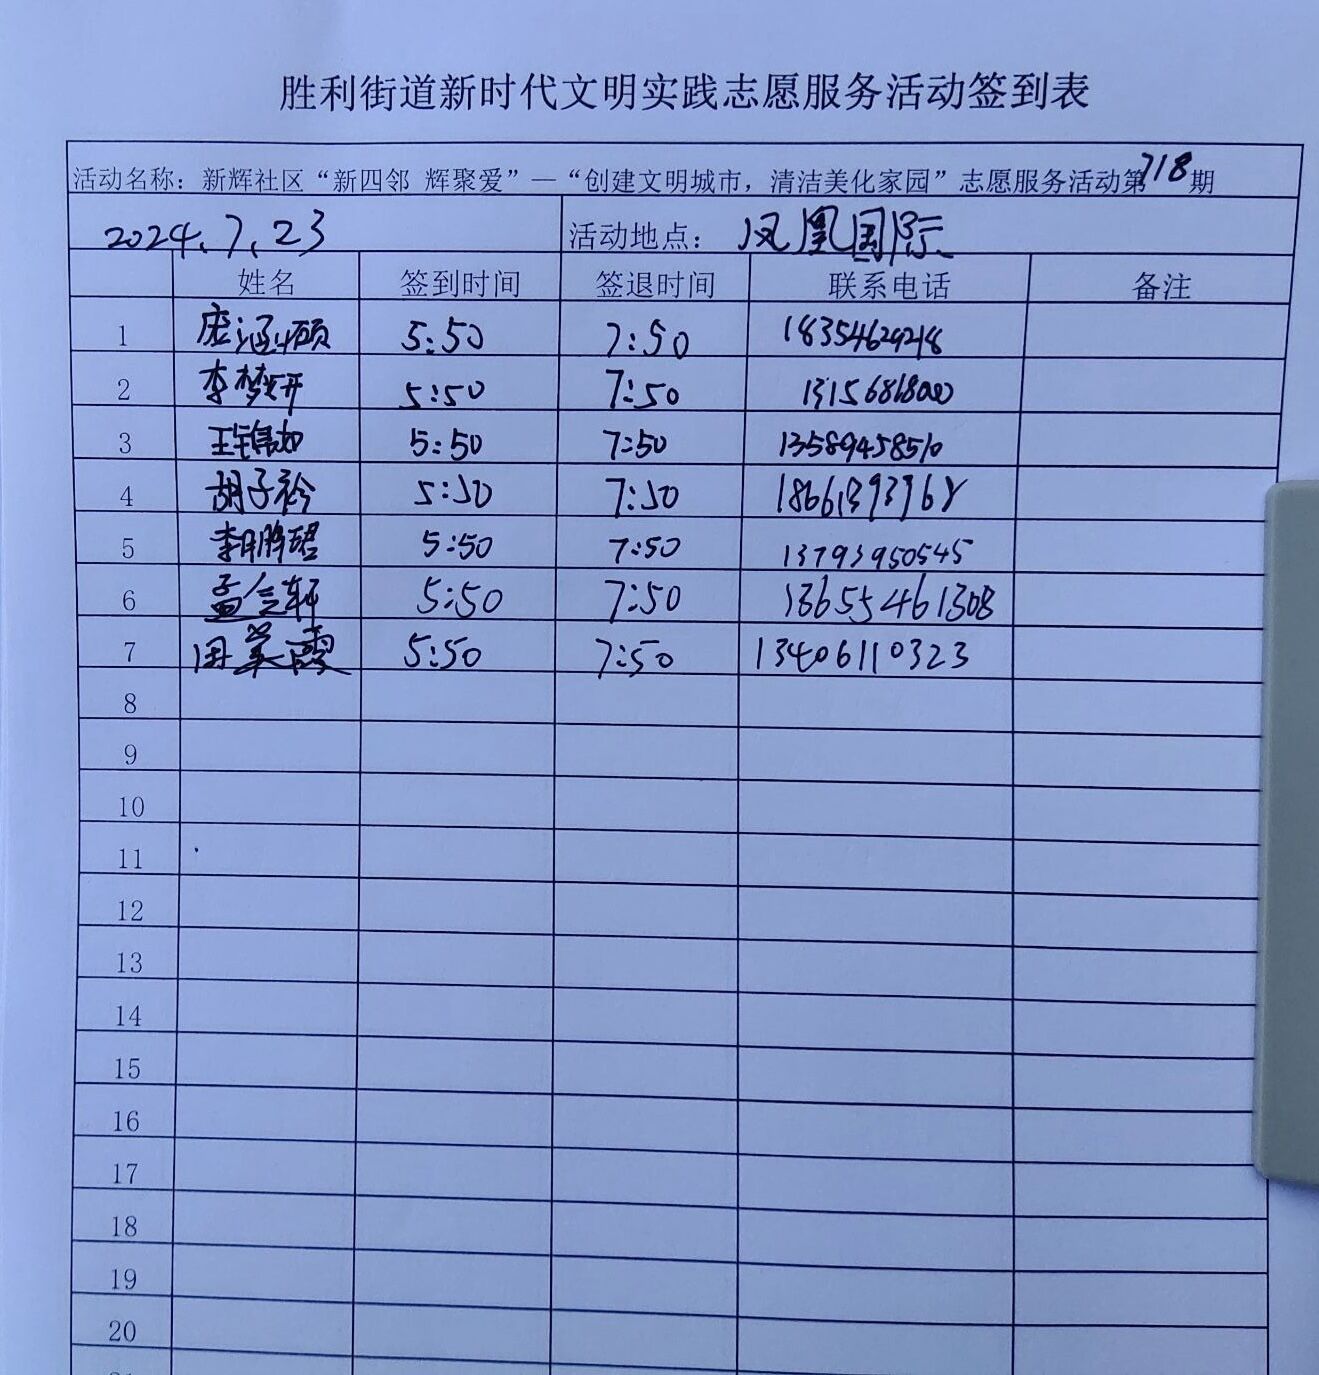 胜利街道新时代文明实践志愿服务活动签到表
活动名称：新辉社区“新四邻 辉聚爱”—“创建文明城市，清洁美化家园”志愿服务活动第718期
2024.7.23 活动地点：凤凰国际
姓名 签到时间 签退时间 联系电话 备注
1 5:50 7:50 18354629218
2 李梦妍 5:50 7:50
3 王锦如 5:50 7:50 13589458510
4 胡子衿 5:50 7:50
5 5:50 7:50 13793950545
6 孟令轩 5:50 7:50 13655461308
7 田英霞 5:50 7:50 13406110323
8
9
10
11
12
13
14
15
16
17
18
19
20